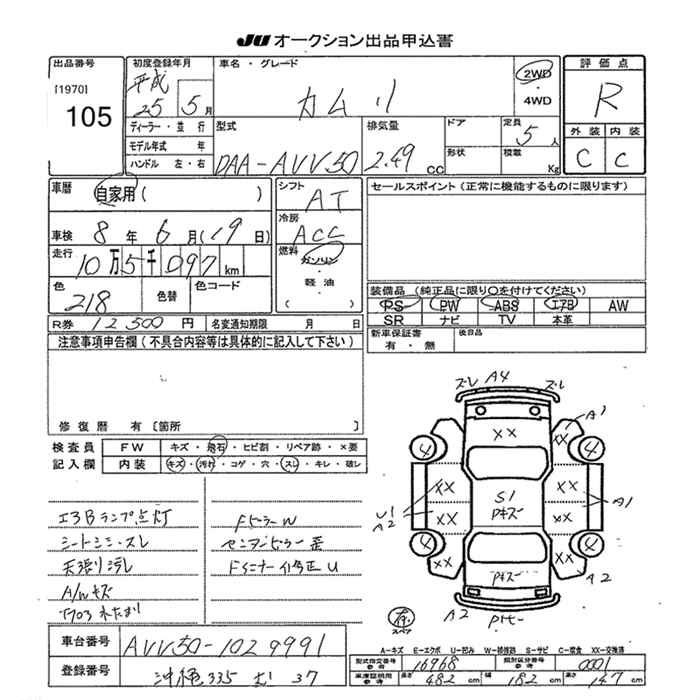 JU オークション出品申込書
出品番号 初度登録年月 車名・グレード 評価点
[1970] 105
平成 25 5月
カムリ
2WD
4WD
R
ディーラー・並行
モデル年式 年
ハンドル 左・右
型式 DAA-AVV50
排気量 2.49 CC
ドア
形状
定員 5人
積載 Kg
外装 内装
C C
車歴 自家用( )
シフト AT
セールスポイント(正常に機能するものに限ります)
車検 8年6月(19日)
冷房 ACC
走行 10万5千097km
燃料 ガソリン
軽油
( )
色 218 色替 色コード
装備品(純正品に限り○を付けてください)
PS PW ABS エアB AW
SR ナビ TV 本革
R券 12500円 名変通知期限 月 日
新車保証書 有・無 後日品
注意事項申告欄(不具合内容等は具体的に記入して下さい)
修復歴 有〔箇所
検査員記入欄
FW キズ・飛石・ヒビ割・リペア跡・×要
内装 キズ・汚れ・コゲ・穴・スレ・キレ・破レ
エアBランプ点灯
シートシミ・スレ
天張り汚レ
A/Wキズ
FピラーW
センターピラー歪
Fインナー修正U
ズレ A4 ズレ
A1
XX
4 4
XX XX
S1
Pキズ
U1
A2
A1
XX XX
4 4
XX XX
Pキズ
A2
A2
有
スペア
A-キズ E-エクボ U-凹み W-補修跡 S-サビ C-腐食 XX-交換済
車台番号 AVV50-1029991
型式指定番号 参考 16968 類別区分番号 参考 0001
登録番号 沖縄 335 む 37
車庫証明用 参考 長さ 482 cm 幅 182 cm 高さ 147 cm